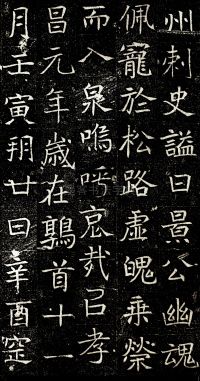 州刺史謚曰景公幽魂
佩寵於松路虛魄乘縈
而入泉嗚呼哀哉已孝
昌元年歲在鶉首十一
月壬寅朔廿日辛酉窆